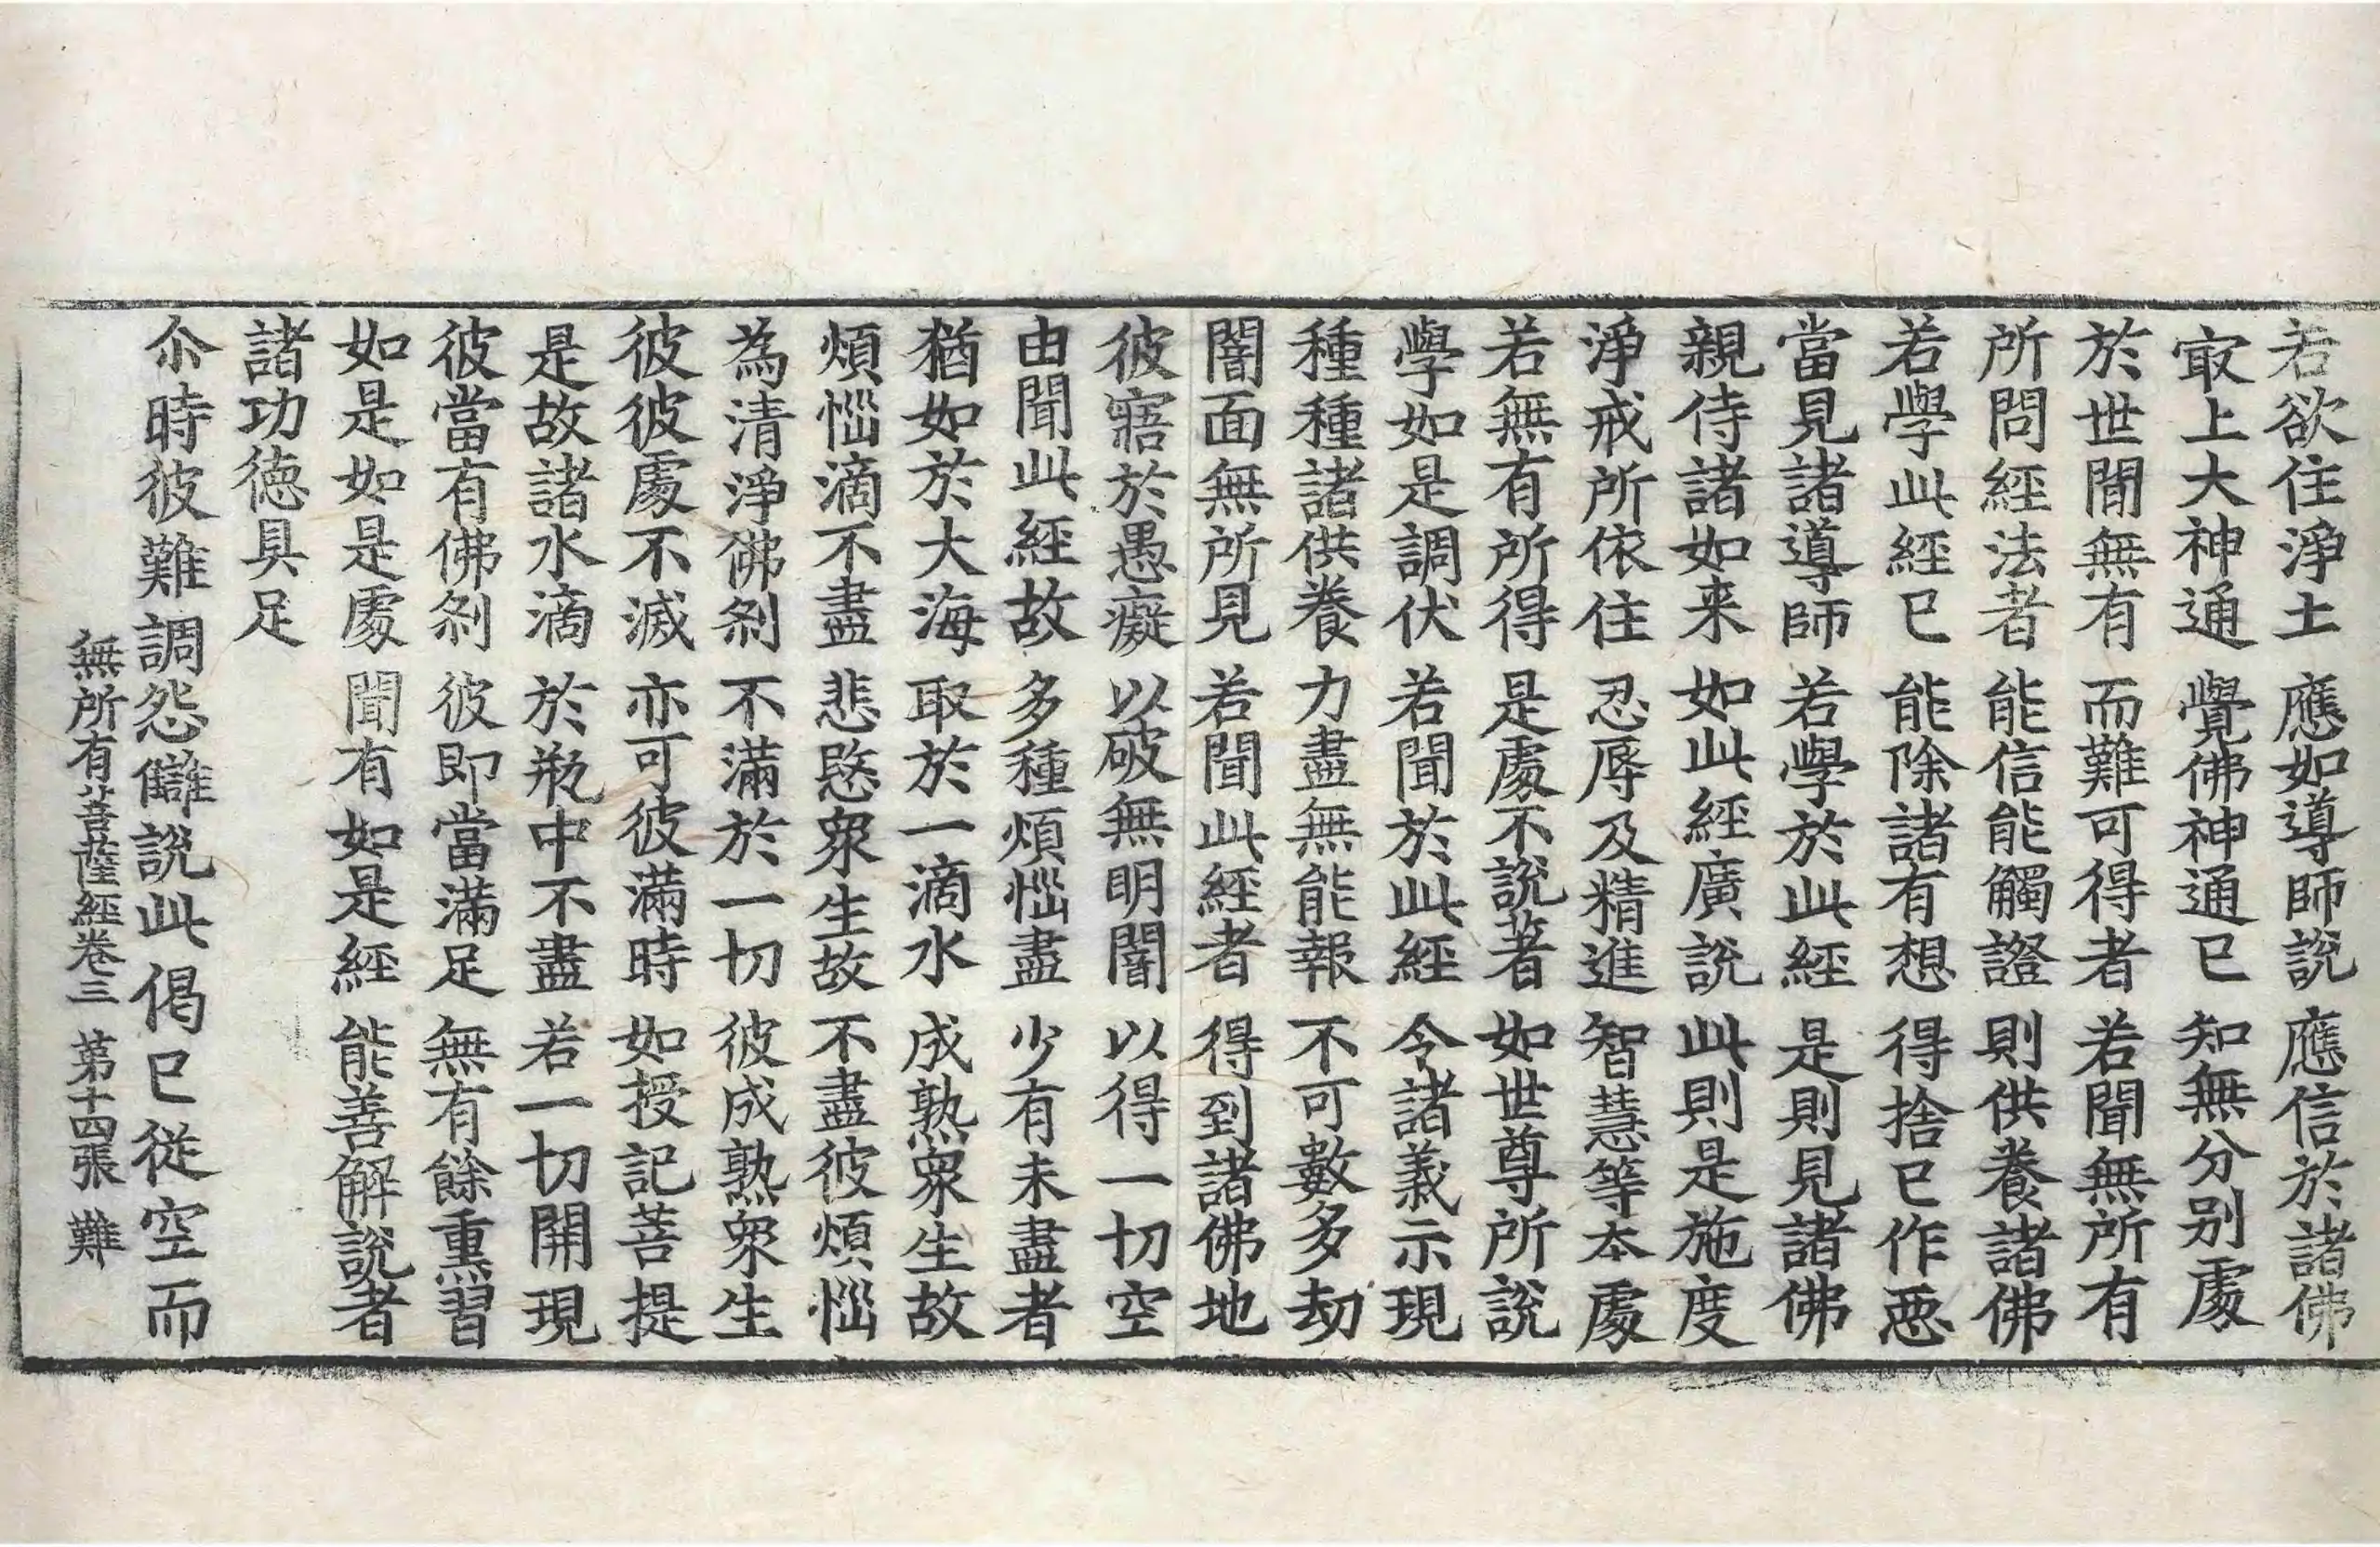 若欲住淨土　應如導師說　應信於諸佛
冣上大神通　覺佛神通已　知無分別處
於世間無有　而難可得者　若聞無所有
所問經法者　能信能觸證　則供養諸佛
若學此經已　能除諸有想　得捨已作惡
當見諸導師　若學於此經　是則見諸佛
親侍諸如来　如此經廣說　此則是施度
淨戒所依住　忍辱及精進　智慧等夲處
若無有所得　是處不說著　如世尊所說
學如是調伏　若聞於此經　令諸義示現
種種諸供養　力盡無能報　不可數多劫
闇面無所見　若聞此經者　得到諸佛地
彼寤於愚癡　以破無明闇　以得一切空
由聞此經故　多種煩惱盡　少有未盡者
猶如於大海　取於一滴水　成熟衆生故
煩惱滴不盡　悲愍衆生故　不盡彼煩惱
為清淨佛剎　不滿於一切　彼成熟衆生
彼彼處不滅　亦可彼滿時　如授記菩提
是故諸水滴　於瓶中不盡　若一切開現
彼當有佛剎　彼即當滿足　無有餘熏習
如是如是處　聞有如是經　能善解說者
諸功德具足
尒時彼難調怨讎說此偈已從空而
無所有菩薩經卷三　第十四張　難